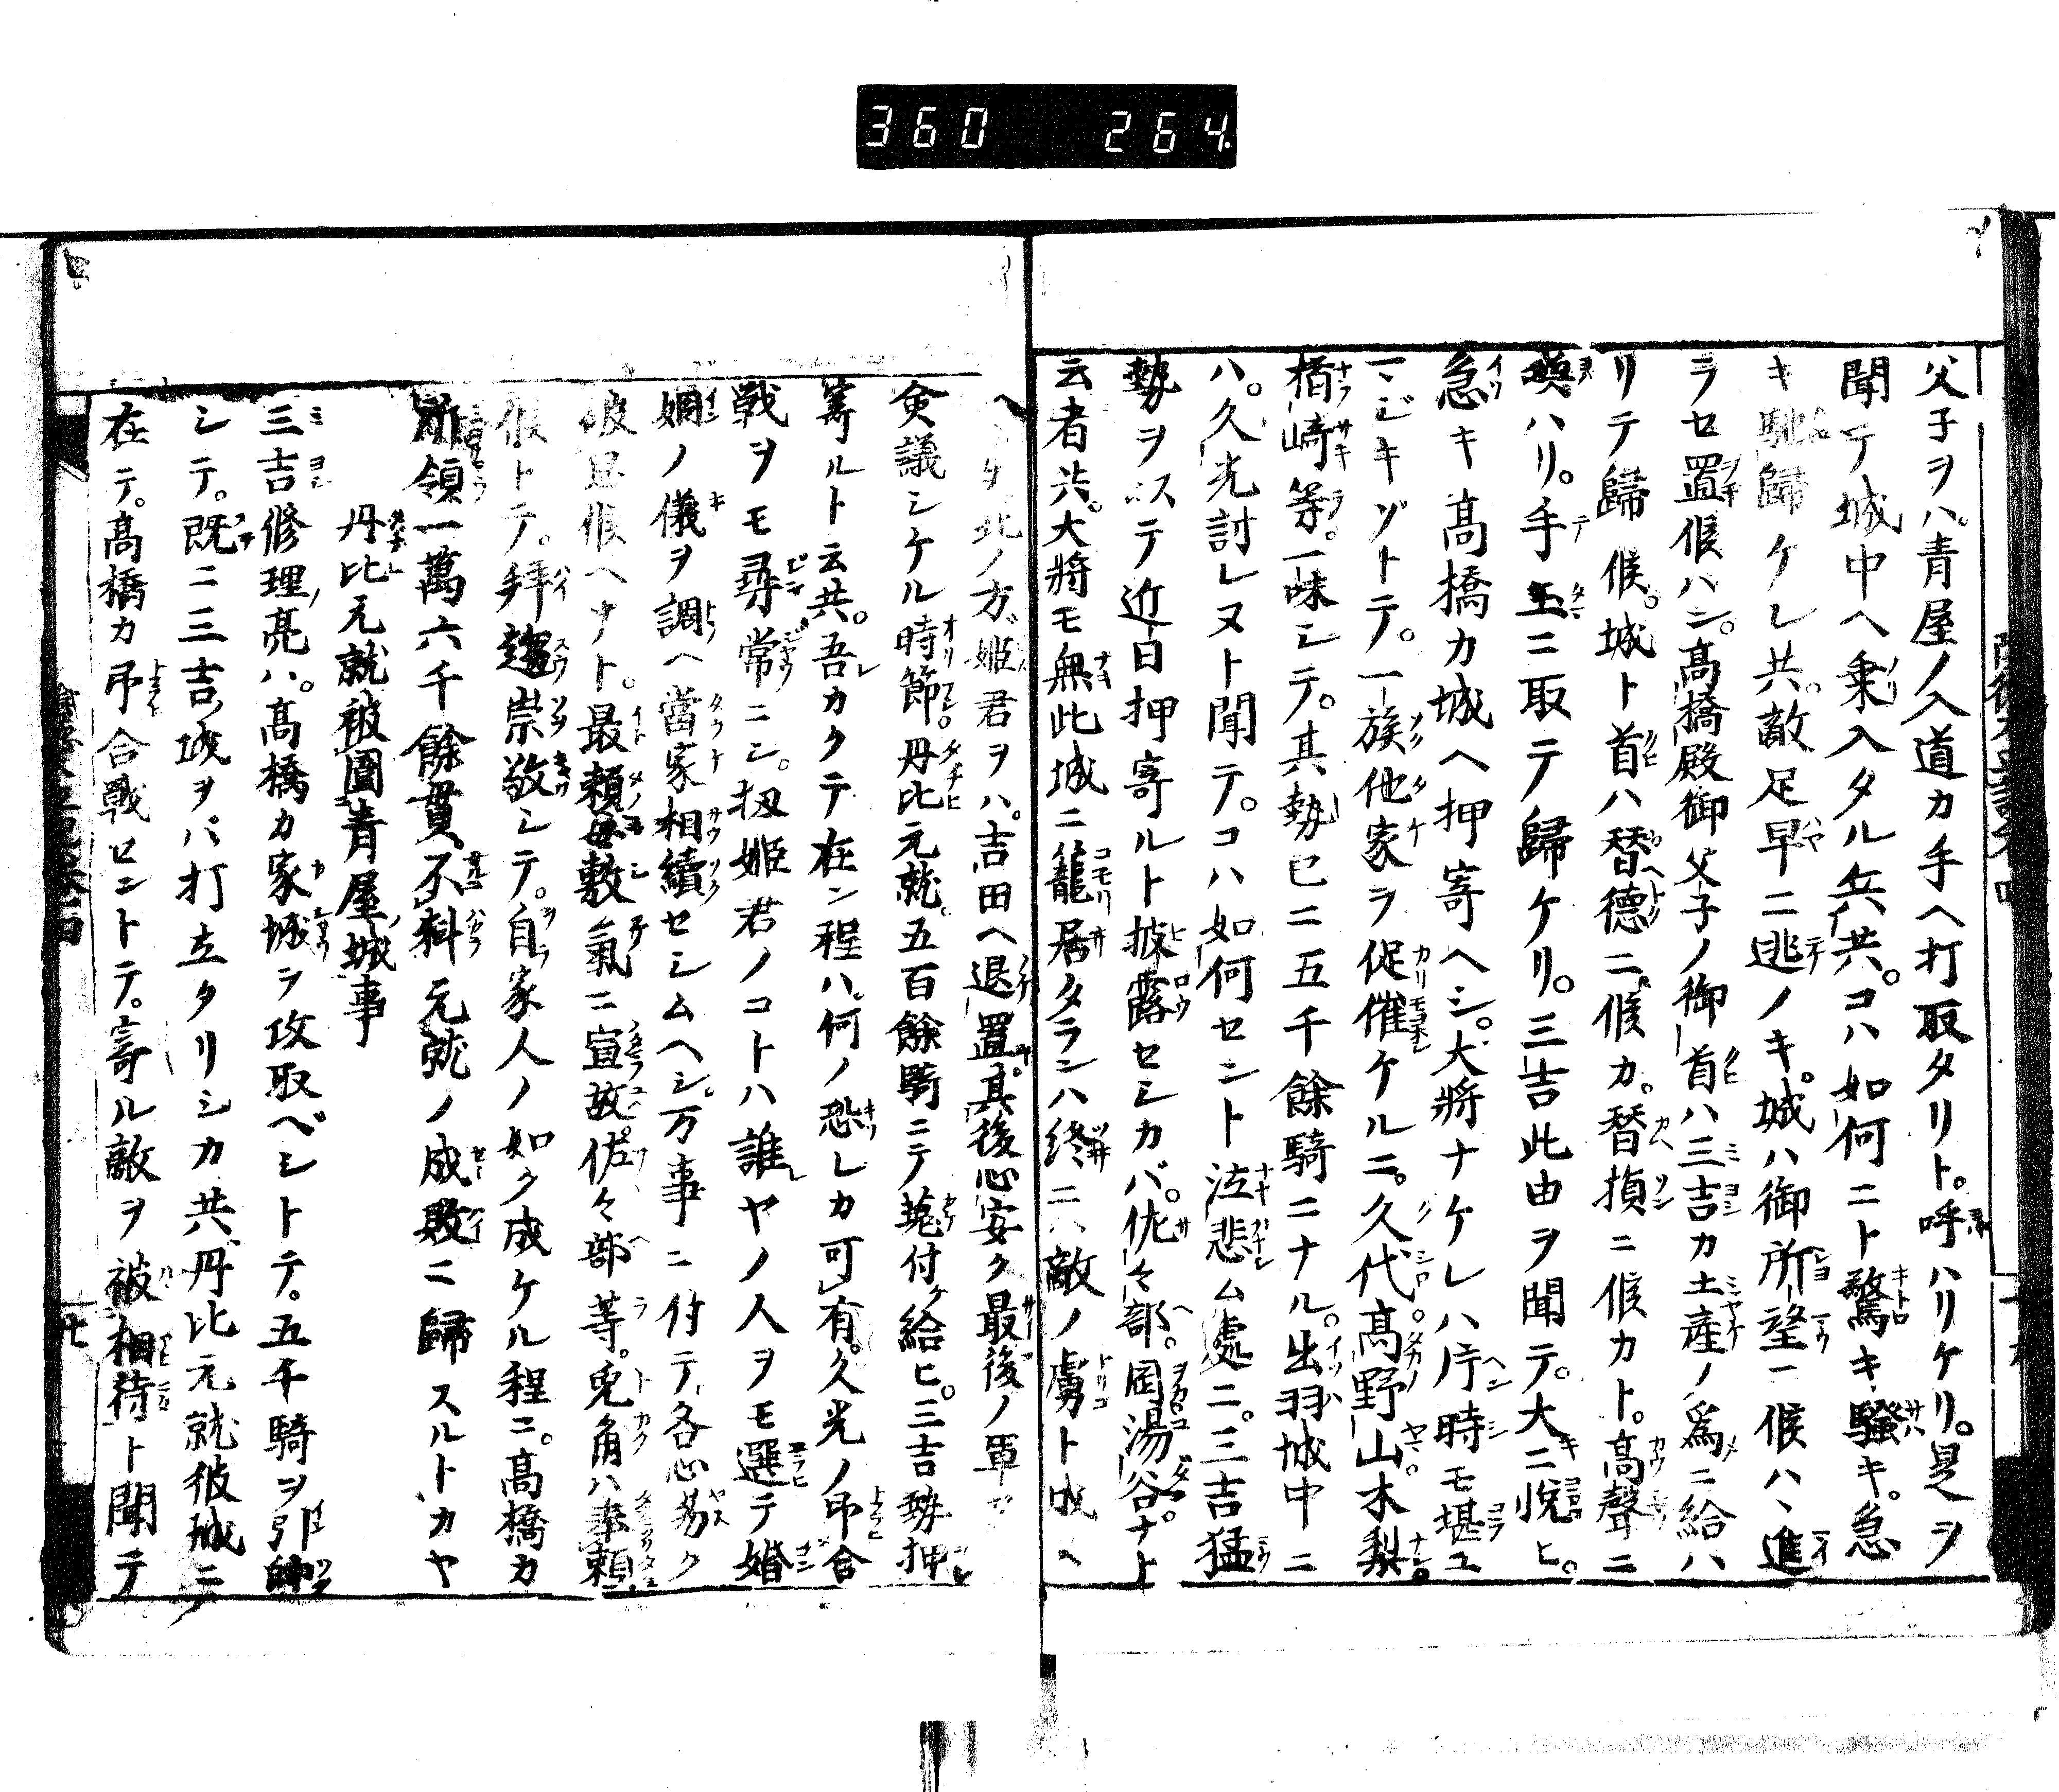 360 264.
父子ヲハ。青屋ノ入道カ手ヘ打取タリト。呼ハリケリ。是ヲ
聞テ城中ヘ乗入タル兵共。コハ如何ニト驚キ騒キ。急
キ馳歸ケレ共。敵足早ニ逃ノキ。城ハ御所望ニ候ハヽ進
ラセ置候ハン。髙橋殿御父子ノ御首ハ三吉カ土産ノ爲ニ給ハ
リテ歸候。城ト首ハ替德ニ候カ。替損ニ候カト。髙聲ニ
喚ハリ。手玉ニ取テ歸ケリ。三吉此由ヲ聞テ。大ニ悦ヒ。
急キ髙橋カ城ヘ押寄ヘシ。大將ナケレハ片時モ堪ユ
ヘシキゾトテ。一族他家ヲ促催ケルニ。久代髙野山木梨。
楢﨑等。一味シテ。其勢已ニ五千餘騎ニナル。出羽城中ニ
ハ。久光討レヌト聞テ。コハ如何セント泣悲ム處ニ。三吉猛
勢ヲ以テ近日押寄ルト披露セシカバ。佐々部。岡湯谷ナト
云者共。大將モ無此城ニ籠居タランハ終ニハ敵ノ虜ト成ヘ
北ノ方。姬君ヲハ。吉田ヘ退置。其後心安ク最後ノ軍セ
僉議シケル時節。丹比元就。五百餘騎ニテ著付ケ給ヒ。三吉勢押
寄ルト云共。吾カクテ在ン程ハ。何ノ恐レカ可有。久光ノ吊合
戰ヲモ尋常ニシ。扨姬君ノコトハ誰ヤノ人ヲモ選テ婚
姻ノ儀ヲ調ヘ當家相續セシムヘシ。万事ニ付テ各心易ク
彼思候ヘナト。最賴母敷氣ニ宣故。佐々部等。兎角ハ奉賴
候トテ。拜趨崇敬シテ。自家人ノ如ク成ケル程ニ。髙橋カ
所領一萬六千餘貫。不料元就ノ成敗ニ歸スルトカヤ
丹比元就被圍青屋城事
三吉修理亮ハ。髙橋カ家城ヲ攻取ベシトテ。五千騎ヲ引帥
シテ。既ニ三吉城ヲバ打立タリシカ共。丹比元就彼城ニ
在テ。髙橋カ吊合戰セントテ。寄ル敵ヲ被相待ト聞テ